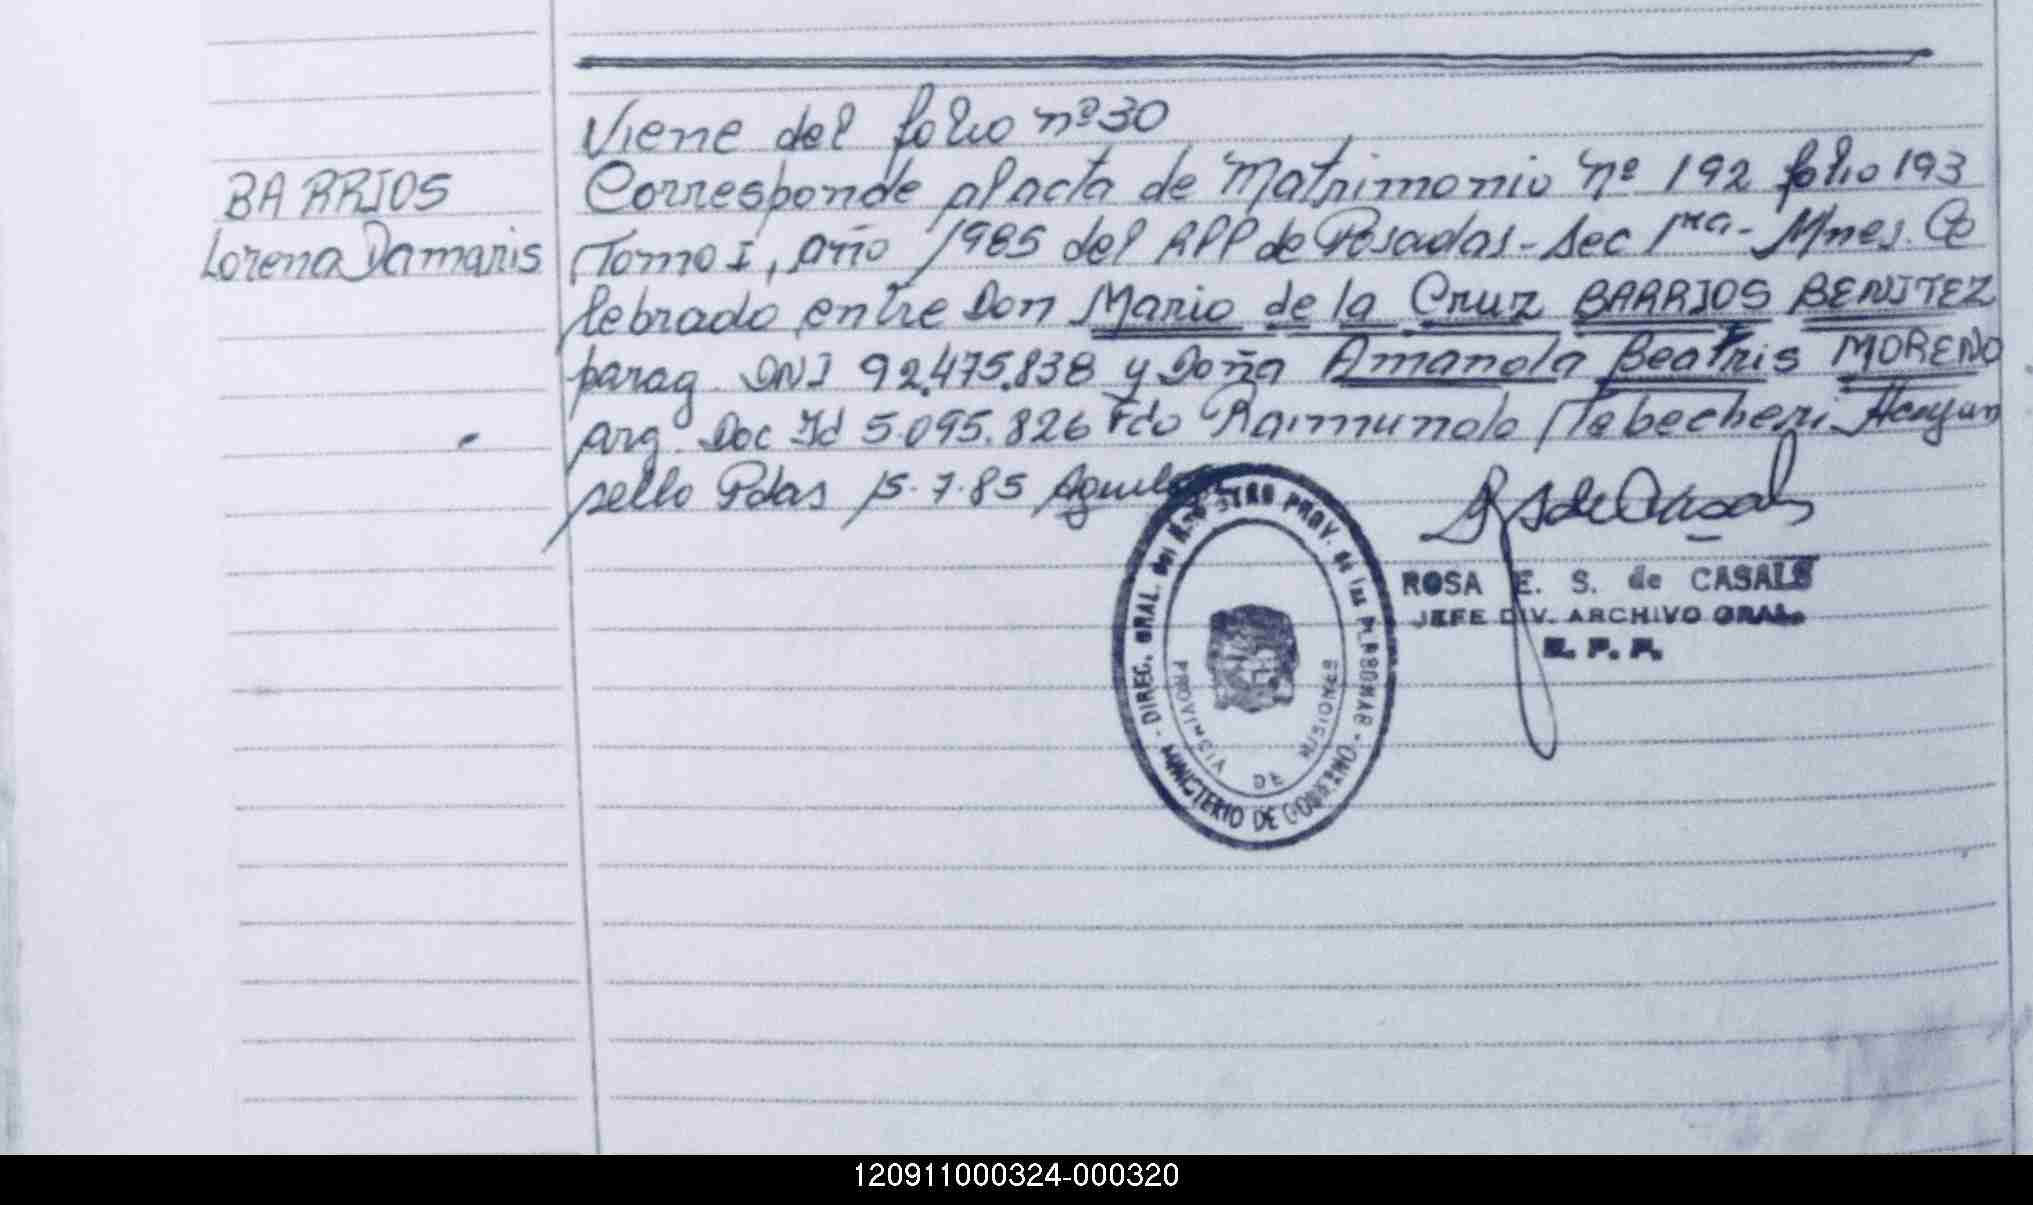 Viene del folio nº 30
BARRIOS
Lorena Damaris
Corresponde al acta de Matrimonio nº 192 folio 193
Tomo I, año 1985 del RPP de Posadas - Sec 1ra - Mnes. Ce
lebrado entre Don Mario de la Cruz BARRIOS BENITEZ
parag. DNI 92.475.838 y Doña Amanda Beatris MORENO
arg. Doc Id 5.095.826 Fdo Raimundo
sello Pdas 15.7.85
DIREC. GRAL. del REGISTRO PROV. de las PERSONAS - MINISTERIO DE GOBIERNO -
PROVINCIA DE MISIONES
ROSA E. S. de CASALS
JEFE DIV. ARCHIVO GRAL.
R. P. P.
120911000324-000320